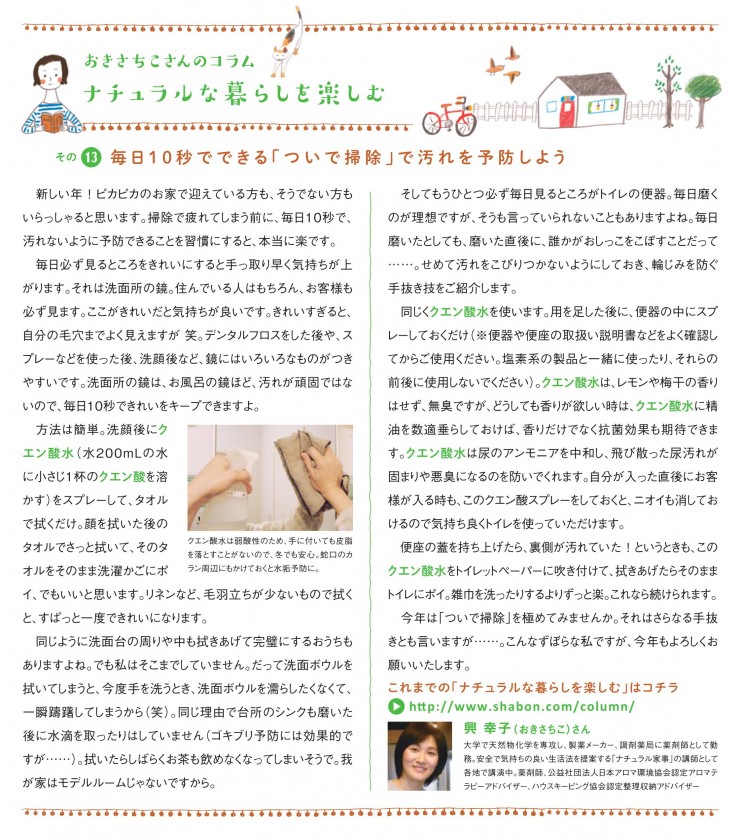 おきさちこさんのコラム
ナチュラルな暮らしを楽しむ
その 13 毎日10秒でできる「ついで掃除」で汚れを予防しよう
新しい年！ピカピカのお家で迎えている方も、そうでない方も
いらっしゃると思います。掃除で疲れてしまう前に、毎日10秒で、
汚れないように予防できることを習慣にすると、本当に楽です。
毎日必ず見るところをきれいにすると手っ取り早く気持ちが上
がります。それは洗面所の鏡。住んでいる人はもちろん、お客様も
必ず見ます。ここがきれいだと気持ちが良いです。きれいすぎると、
自分の毛穴までよく見えますが 笑。デンタルフロスをした後や、ス
プレーなどを使った後、洗顔後など、鏡にはいろいろなものがつき
やすいです。洗面所の鏡は、お風呂の鏡ほど、汚れが頑固ではな
いので、毎日10秒できれいをキープできますよ。
方法は簡単。洗顔後にク
エン酸水（水200mLの水
に小さじ1杯のクエン酸を溶
かす）をスプレーして、タオル
で拭くだけ。顔を拭いた後の
タオルでさっと拭いて、そのタ
オルをそのまま洗濯かごにポ
イ、でもいいと思います。リネンなど、毛羽立ちが少ないもので拭く
と、すぱっと一度できれいになります。
クエン酸水は弱酸性のため、手に付いても皮脂
を落とすことがないので、冬でも安心。蛇口のカ
ラン周辺にもかけておくと水垢予防に。
同じように洗面台の周りや中も拭きあげて完璧にするおうちも
ありますよね。でも私はそこまでしていません。だって洗面ボウルを
拭いてしまうと、今度手を洗うとき、洗面ボウルを濡らしたくなくて、
一瞬躊躇してしまうから（笑）。同じ理由で台所のシンクも磨いた
後に水滴を取ったりはしていません（ゴキブリ予防には効果的で
すが……）。拭いたらしばらくお茶も飲めなくなってしまいそうで。我
が家はモデルルームじゃないですから。
そしてもうひとつ必ず毎日見るところがトイレの便器。毎日磨く
のが理想ですが、そうも言っていられないこともありますよね。毎日
磨いたとしても、磨いた直後に、誰かがおしっこをこぼすことだって
……。せめて汚れをこびりつかないようにしておき、輪じみを防ぐ
手抜き技をご紹介します。
同じくクエン酸水を使います。用を足した後に、便器の中にスプ
レーしておくだけ（※便器や便座の取扱い説明書などをよく確認し
てからご使用ください。塩素系の製品と一緒に使ったり、それらの
前後に使用しないでください）。クエン酸水は、レモンや梅干の香り
はせず、無臭ですが、どうしても香りが欲しい時は、クエン酸水に精
油を数適垂らしておけば、香りだけでなく抗菌効果も期待できま
す。クエン酸水は尿のアンモニアを中和し、飛び散った尿汚れが
固まりや悪臭になるのを防いでくれます。自分が入った直後にお客
様が入る時も、このクエン酸スプレーをしておくと、ニオイも消してお
けるので気持ち良くトイレを使っていただけます。
便座の蓋を持ち上げたら、裏側が汚れていた！というときも、この
クエン酸水をトイレットペーパーに吹き付けて、拭きあげたらそのまま
トイレにポイ。雑巾を洗ったりするよりずっと楽。これなら続けられます。
今年は「ついで掃除」を極めてみませんか。それはさらなる手抜
きとも言いますが……。こんなずぼらな私ですが、今年もよろしくお
願いいたします。
これまでの「ナチュラルな暮らしを楽しむ」はコチラ
http://www.shabon.com/column/
興 幸子（おきさちこ）さん
大学で天然物化学を専攻し、製薬メーカー、調剤薬局に薬剤師として勤
務。安全で気持ちの良い生活法を提案する「ナチュラル家事」の講師として
各地で講演中。薬剤師、公益社団法人日本アロマ環境協会認定アロマテ
ラピーアドバイザー、ハウスキーピング協会認定整理収納アドバイザー